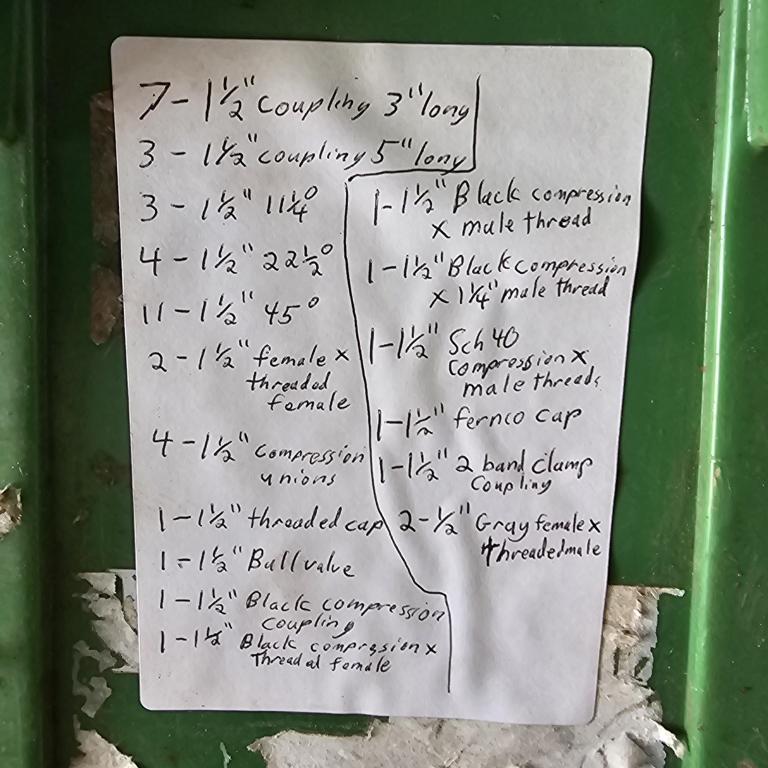 7 - 1 1/2" coupling 3" long
3 - 1 1/2" coupling 5" long
3 - 1 1/2" 11 1/4°
4 - 1 1/2" 22 1/2°
11 - 1 1/2" 45°
2 - 1 1/2" female x
threaded
female
4 - 1 1/2" compression
unions
1 - 1 1/2" threaded cap
1 - 1 1/2" Ball valve
1 - 1 1/2" Black compression
coupling
1 - 1 1/2" Black comprssion x
Thread ed female
1 - 1 1/2" Black compression
x male thread
1 - 1 1/2" Black compression
x 1 1/4" male thread
1 - 1 1/2" Sch 40
compression x
male threads
1 - 1 1/2" fernco cap
1 - 1 1/2" 2 band clamp
Coupling
2 - 1/2" Gray female x
threaded male